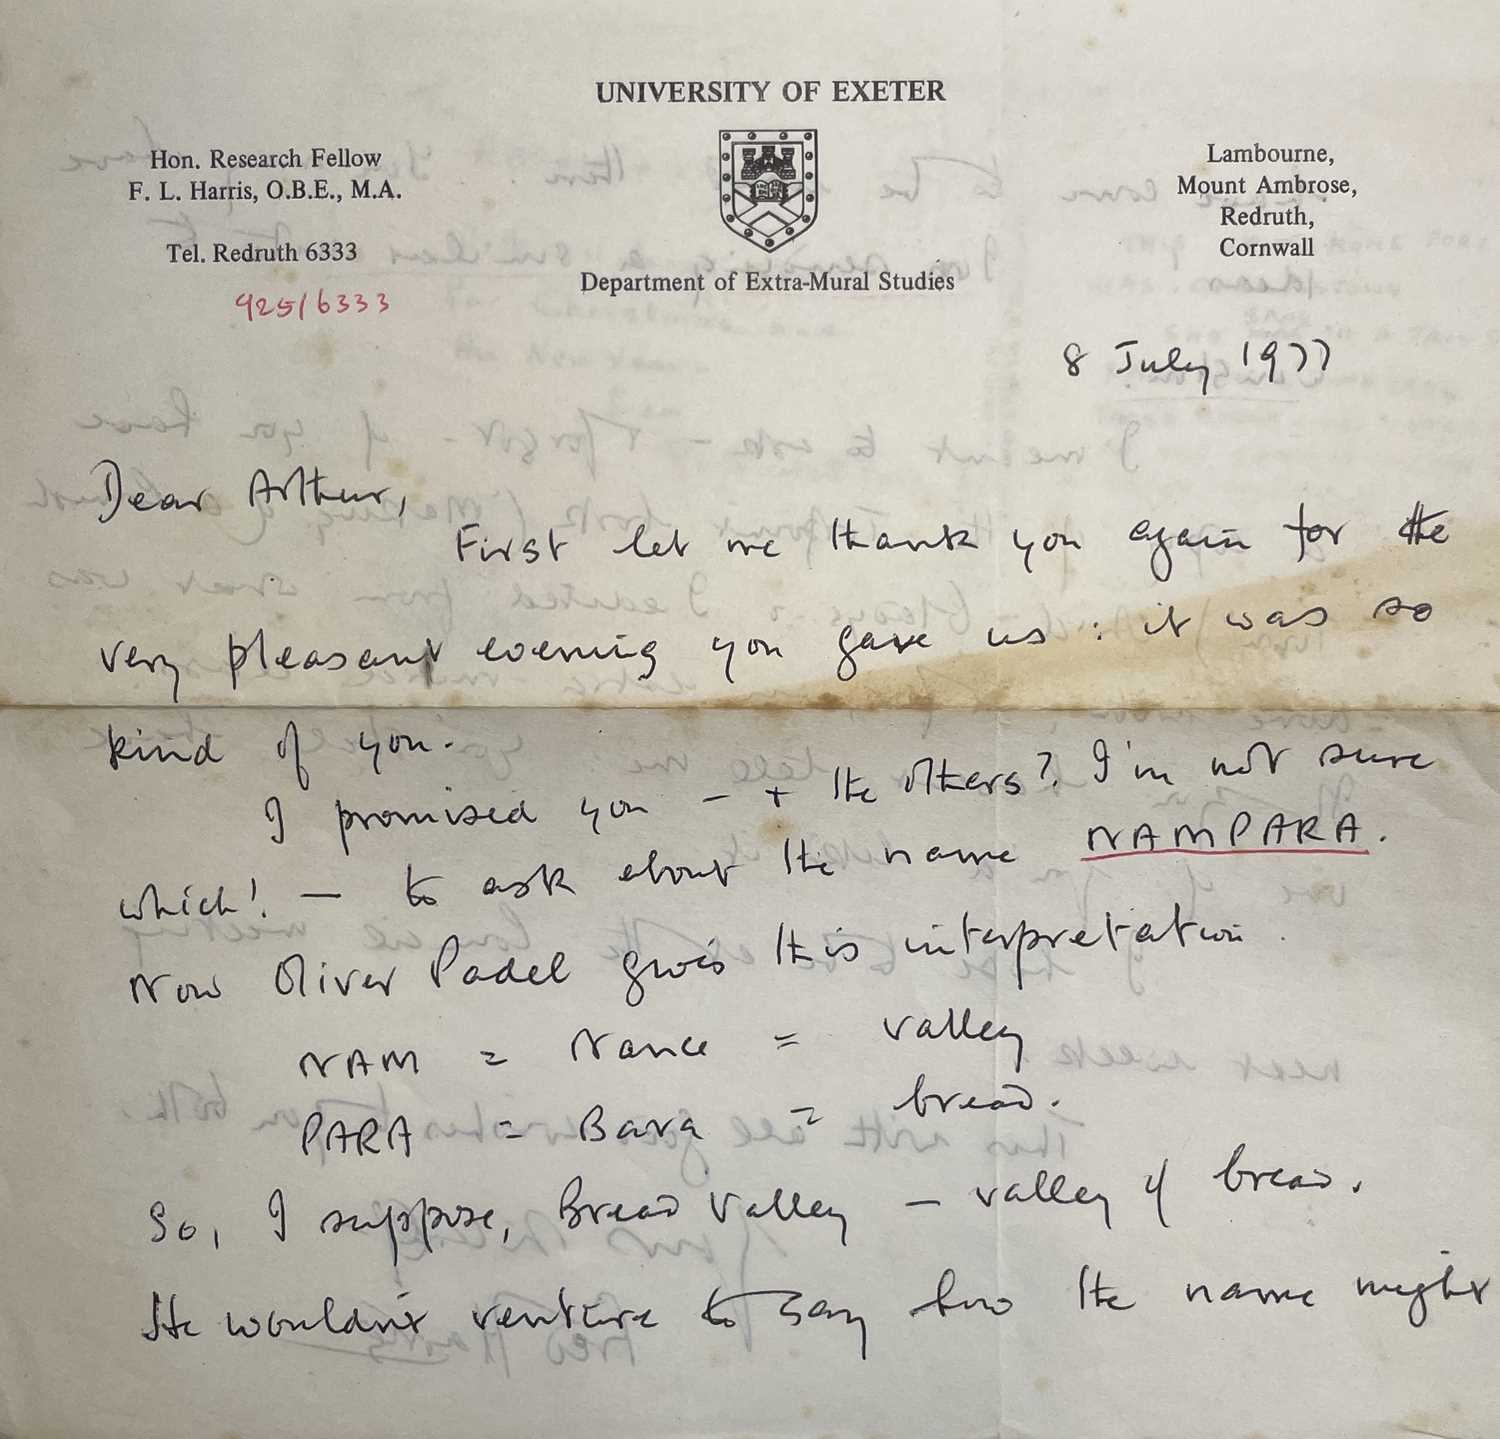 UNIVERSITY OF EXETER
Hon. Research Fellow
F. L. Harris, O.B.E., M.A.
Tel. Redruth 6333
925/6333
Department of Extra-Mural Studies
Lambourne,
Mount Ambrose,
Redruth,
Cornwall
8 July 1977
Dear Arthur,
First let me thank you again for the
very pleasant evening you gave us : it was so
kind of you.
I promised you – + the others? I'm not sure
which! — to ask about the name NAMPARA.
Now Oliver Padel gives this interpretation.
NAM = Nance = valley
PARA = Bara = bread.
So, I suppose, Bread Valley – valley of bread.
He wouldn't venture to say how the name might